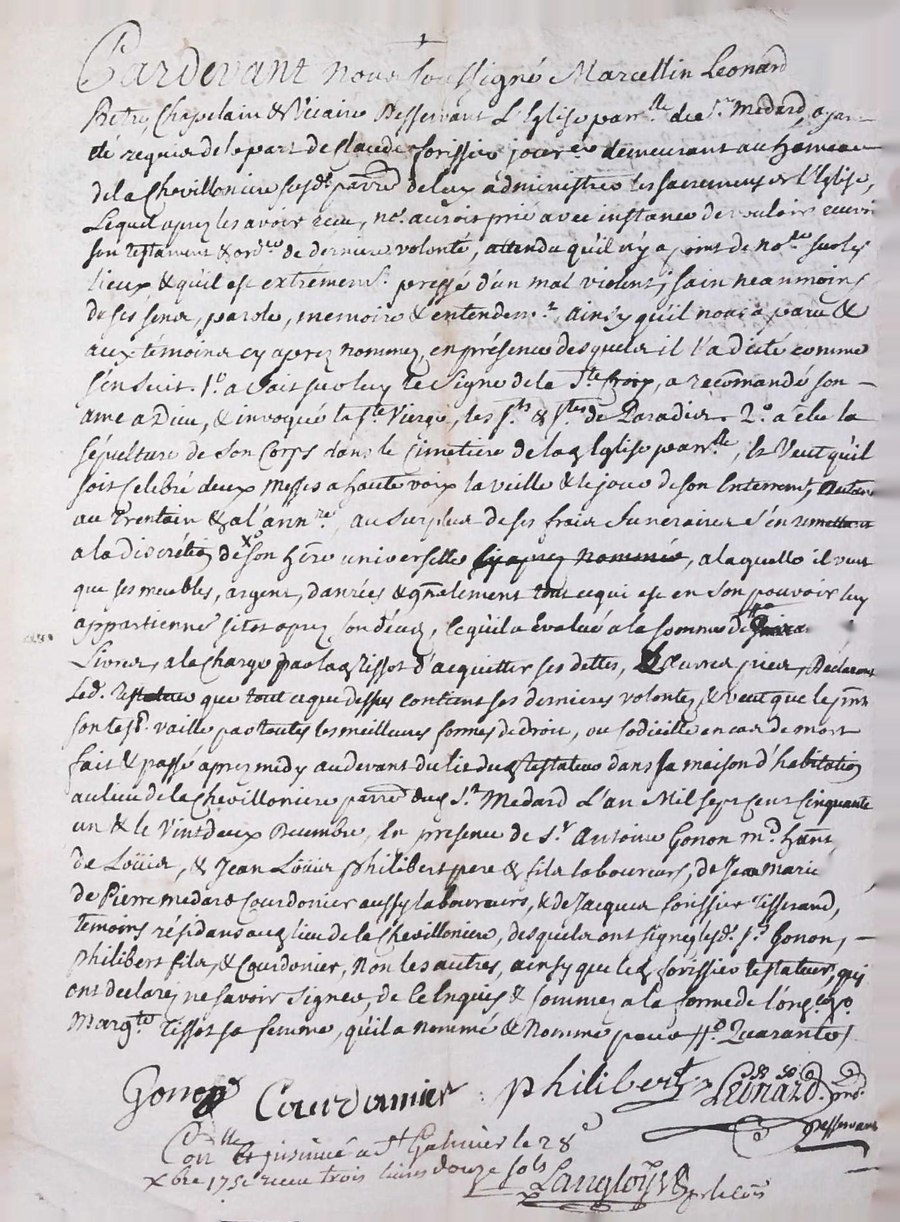 Pardevant nous soussigné Marcellin Leonard
Pretre, Chapelain & Vicaire Desservant L'Eglise par.lle de St Medard, ayant
été requis de la part de Claude forissier jour.er demeurant au hameau
de la Chevilloniere susd. parr.e de luy administrer les sacremens de l'Eglise,
Lequel apres les avoir receu, n.s auroit prié avec instance de vouloir recevoir
son testament & ord.ce de derniere volonté, attendu qu'il n'y a point de no.re sur les
lieux, & qu'il est extremem.t pressé d'un mal violent; sain neanmoins
de ses sens, parole, memoire & entendem.t, ainsy qu'il nous a paru &
aux témoins cy apres nommez, en présence desquels il l'a dicté comme
s'en suit. 1.o a fait sur luy le Signe de la Ste Croix, a recomandé son
ame a Dieu, & invoqué la Ste Vierge, les Sts & Stes de Paradis. 2.o a elu la
sépulture de son Corps dans le Cimetiere de lad. Eglise par.lle, Et Veut qu'il
soit Celebré deux Messes a haute voix la veille & le jour de son Enterrement,
au trentain & a l'ann.re, au surplus de ses frais funeraires s'en remettant
a la discrétion de xo son here universelle cy apres nommée, a laquelle il veut
que ses meubles, argent, danrées & gñalement tout ce qui est en son pouvoir luy
appartienne sitot apres son décez, ce qu'il a évalué a la somme de
Livres, a la charge par lad. tissot d'acquitter ses dettes, & œuvres pies, Déclarant
Led. testateur que tout ce que dessus contient ses dernieres volontez, & veut que le pñt
son test. vaille par toutes les meilleures formes de droit, ou Codicille en cas de mort
fait & passé apres medy au devant du lit dud. testateur dans sa maison d'habitation
au lieu de la Chevilloniere parr.e dud. St Medard L'an Mil sept Cent Cinquante
un & le Vint deux Decembre, En presence de Sr Antoine Gonon m.d
de Loüis, & Jean Loüis philibert pere & fils laboureurs, de Jean Marie
de Pierre medard Courdonier aussy laboureurs, & de Jacques forissier tisserand,
témoins résidans aud. lieu de la Chevilloniere, desquels ont signé lesd. Sr Gonon,
philibert fils, & Courdonier, Non les autres, ainsy que led. forissier testateur, qui
ont declaré ne savoir signer, de ce Enquis & sommez a la forme de l'ord.ce xo
Marg.te tissot sa femme, qu'il a nommé & Nomme pour Quarante
Gonon Courdonier philibert Leonard ptre
desservant
Con.llé & insinué a St Galmier le 28e
xbre 1751 receu trois livres douze sols
Langlois